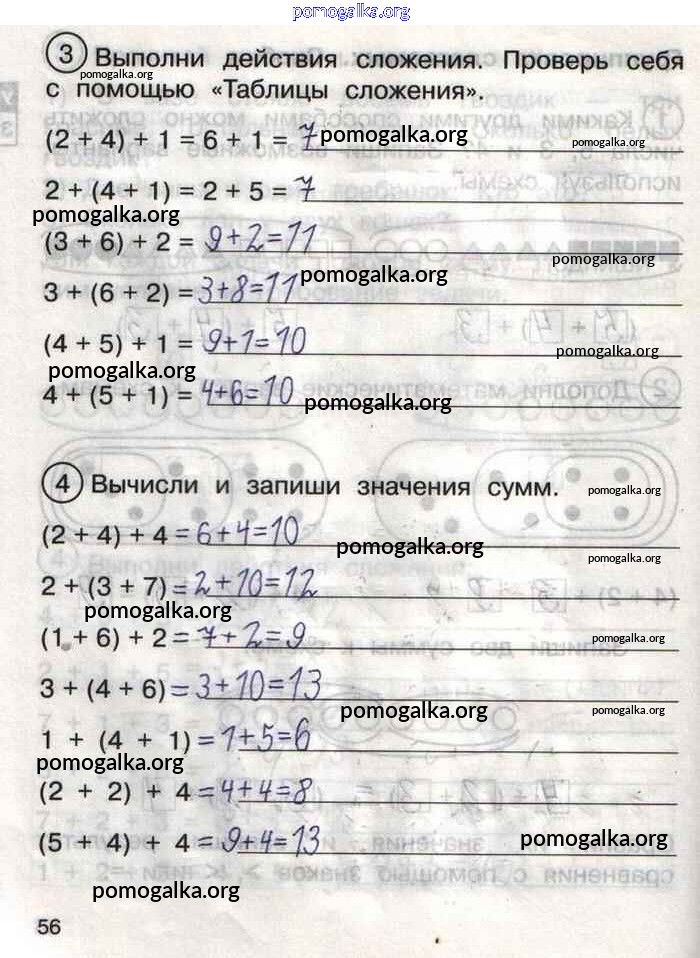 pomogalka.org
3 Выполни действия сложения. Проверь себя
pomogalka.org
с помощью «Таблицы сложения».
(2 + 4) + 1 = 6 + 1 = 7 pomogalka.org pomogalka.org
2 + (4 + 1) = 2 + 5 = 7
pomogalka.org
(3 + 6) + 2 = 9+2=11
pomogalka.org
3 + (6 + 2) = 3+8=11 pomogalka.org
(4 + 5) + 1 = 9+1=10
pomogalka.org
pomogalka.org
4 + (5 + 1) = 4+6=10 pomogalka.org
4 Вычисли и запиши значения сумм.
pomogalka.org
(2 + 4) + 4 = 6+4=10
pomogalka.org
pomogalka.org
2 + (3 + 7) = 2+10=12
pomogalka.org
(1 + 6) + 2 = 7+2=9 pomogalka.org
3 + (4 + 6) = 3+10=13
pomogalka.org pomogalka.org
1 + (4 + 1) = 1+5=6
pomogalka.org
(2 + 2) + 4 = 4+4=8
(5 + 4) + 4 = 9+4=13 pomogalka.org
pomogalka.org
56